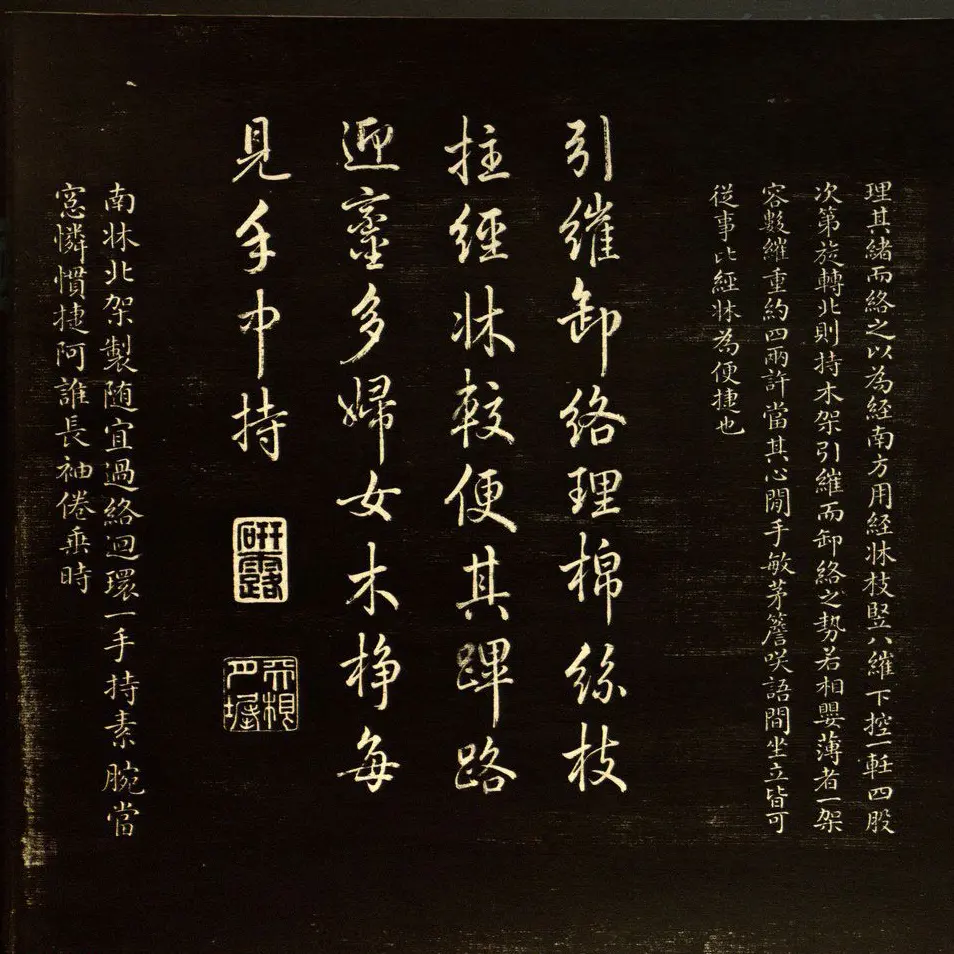 理其緒而絡之以為経南方用経牀枝竪八繀下控一軖四股
次第旋轉北則持木架引繀而卸絡之勢若相嬰薄者一架
容數繀重約四兩許當其心閒手敏茅簷咲語間坐立皆可
従事比經牀為便捷也
引繀卸絡理棉絲枝
拄經牀較便其蹕路
迎鑾多婦女木棦每
見手中持
研露
南牀北架製随宜過絡迴環一手持素腕當
窓憐慣捷阿誰長袖倦垂時